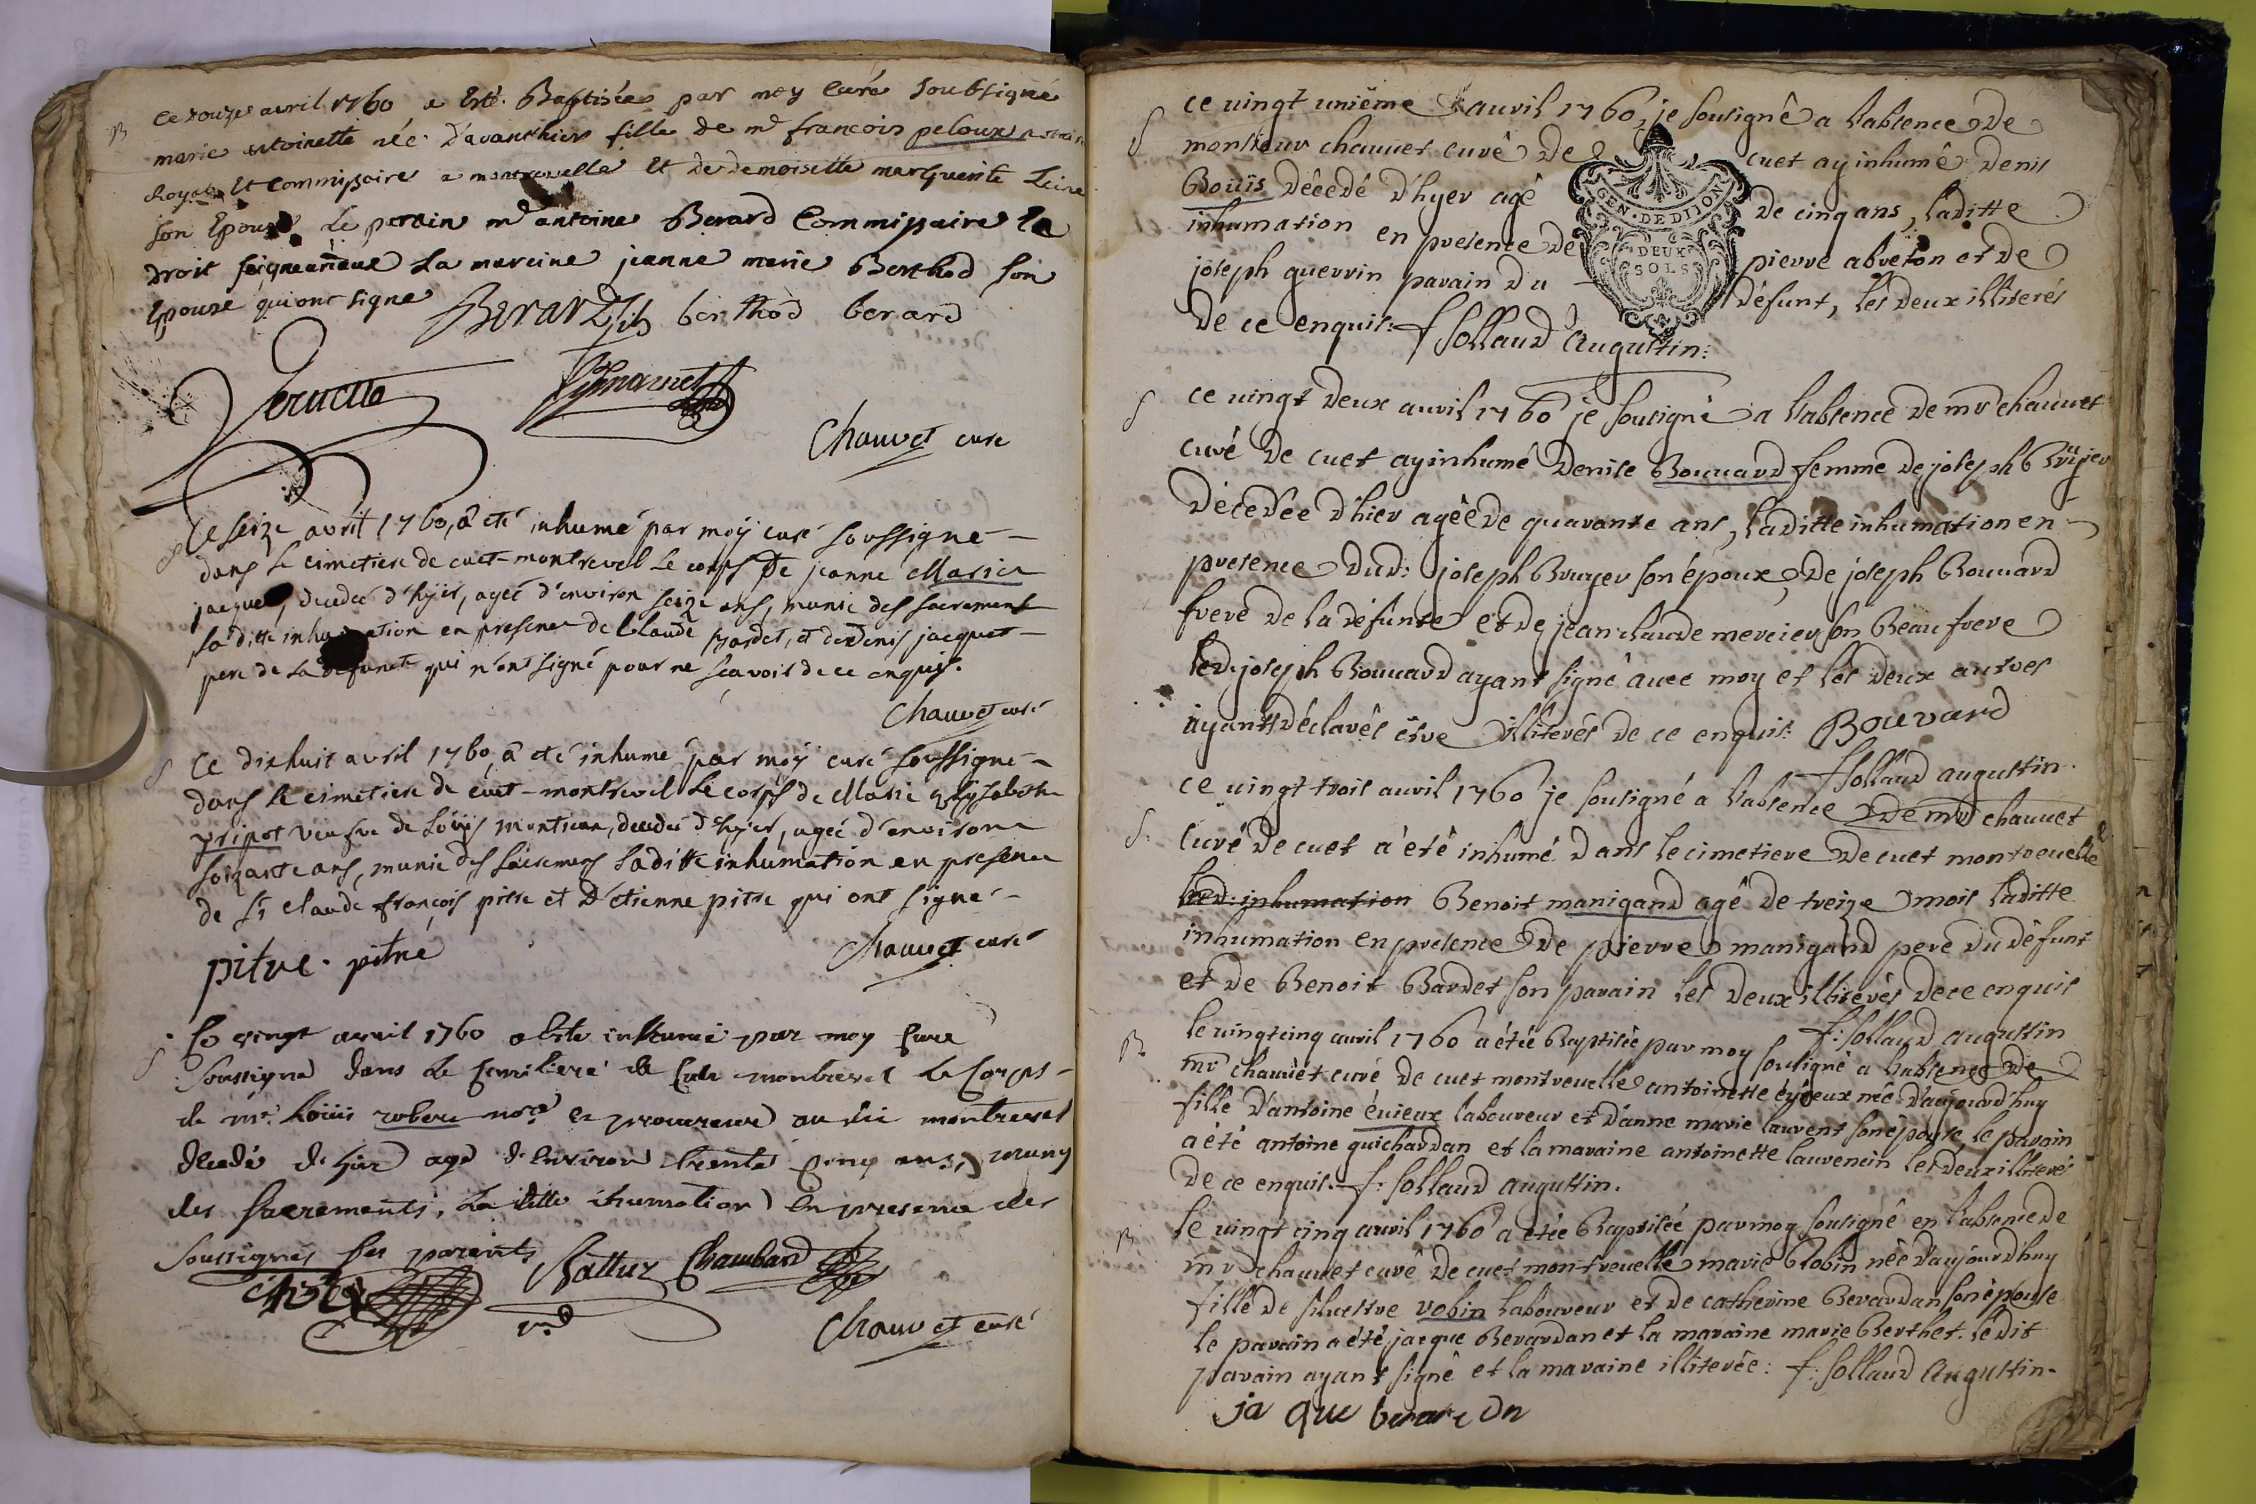 B
ce douze avril 1760 a esté Baptisée par moy curé soubsigné
marie antoinette née d'avanthier fille de mr francois peloux notaire
Royal et Commissaire a montrevelle et de demoiselle marguerite
son epouse le parain mr antoine Berard Commissaire
droit seigneuriaux La mareine jeanne marie Berthod son
Epouse qui ont signe
Berard berthod berard
Chauvet curé
Ce seize avril 1760, a eté inhumé par moÿ curé soussigné
dans le cimetiere de cuet-montrevel le corps de jeanne Marie
jacquet, decedée d'hÿer, agée d'environ seize ans, munie des sacrements
la ditte inhumation en presence de Claude Bardet, et de Denis jacquet
pere de la defuncte qui n'ont signé pour ne sçavoir de ce enquis.
Chauvet curé
S
Ce dixhuit avril 1760, a eté inhumé par moÿ curé soussigné
dans le cimetiere de cuet-montrevel le corps de Marie Elysabeth
pripot veufve de Loüis monteran, decedée d'hÿer, agée d'environ
soixante ans, munie des sacremens laditte inhumation en presence
de Sr claude françois pitre et d'etienne pitre qui ont signé
pitre pitre
Chauvet curé
S
Le vingt avril 1760 a esté inhumé par moy Curé
soussigné dans le cemitiere de Cuet montrevel le Corps
de mr. Loüis robert nore et procureur au dit montrevel
decedé d'hier agé d'environ trente cinq ans, muny
des sacrements, La ditte inhumation en presence des
soussignés ses parents
Chambard
Chauvet curé
S
ce vingt unième avril 1760, je soutigné a l'absence de
monsieur chauvet curé de cuet ay inhumé denis
Boüis décedé d'hyer agé de cinq ans, laditte
inhumation en presence de pierre abreton et de
joseph guerrin parain du défunt, les deux illiterés
de ce enquis. f. sollaud Augustin.
GEN. DE DIJON
DEUX
SOLS
S
ce vingt deux avril 1760 je soutigné a l'absence de mr chauvet
curé de cuet ay inhumé Denise Bouvard femme de joseph Bruyer
décedée d'hier agée de quarante ans, laditte inhumation en
presence dud: joseph Bruyer son époux, de joseph Bouvard
frere de la défunte et de jean claude mercier son Beau frere
led. joseph Bouvard ayant signé avec moy et les deux autres
ayants déclarés être illiterés de ce enquis. Bouvard
f sollaud augustin.
S.
ce vingt trois avril 1760 je soutigné a l'absence de mr chauvet
curé de cuet a été inhumé dans le cimetiere de cuet montrevelle
lad: inhumation Benoit manigand agé de treize mois laditte
inhumation en presence de pierre manigand pere du défunt
et de Benoit Bardet son parain les deux illiterés de ce enquis
f. sollaud augustin
B
le vingt cinq avril 1760 a étée Baptisée par moy soutigné a l'absence de
mr chauvet curé de cuet montrevelle antoinette évieux née d'aujourd'huy
fille d'antoine évieux laboureur et d'anne marie laurent son épouse, le parain
a été antoine guichardan et la maraine antoinette laurencin les deux illiterés
de ce enquis. f. sollaud augustin.
B
le vingt cinq avril 1760 a étée Baptisée par moy soutigné en l'absence de
mr chauvet curé de cuet montrevelle marie Robin née d'aujourd'huy
fille de silvestre robin laboureur et de catherine Berardan son épouse
le parain a été jacque Berardan et la maraine marie Berthet. ledit
parain ayant signé et la maraine illiterée: f. sollaud Augustin.
ja que berardn